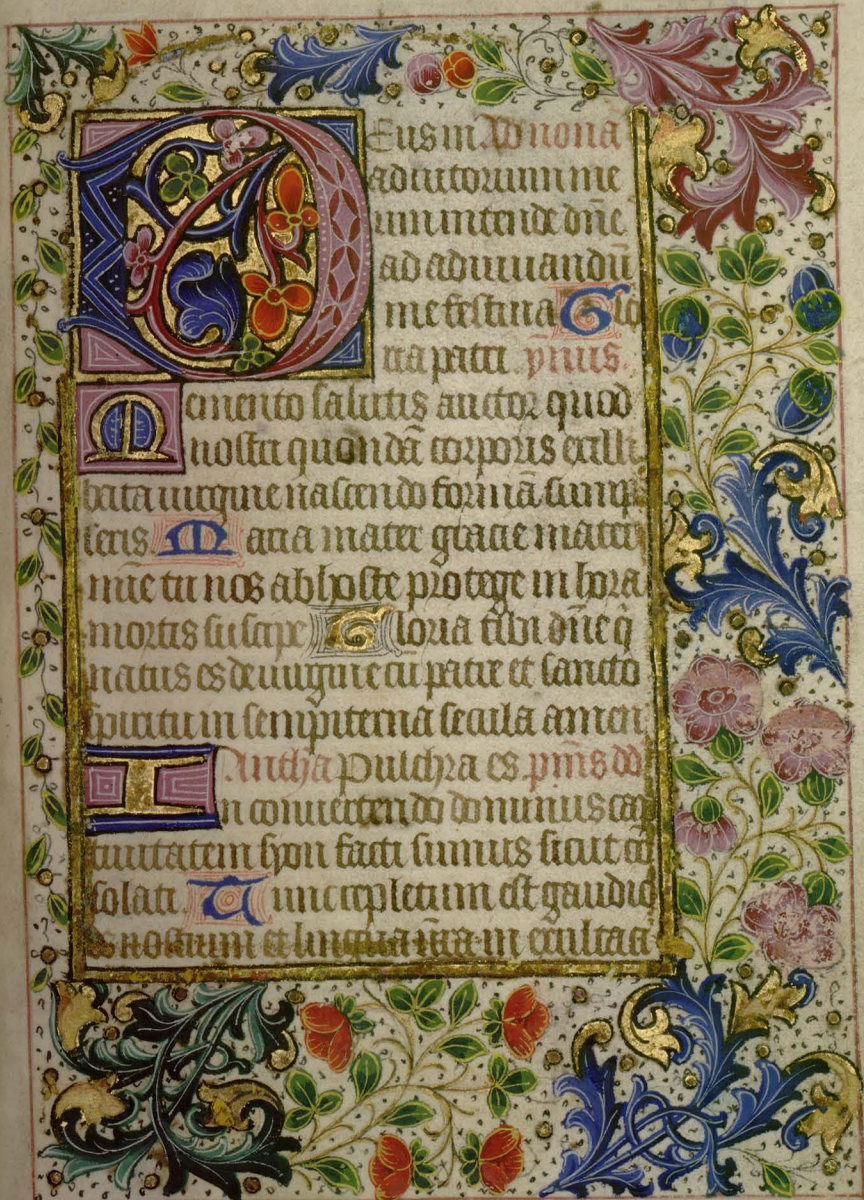 Eus in Ad nona
adiutorium me
um intende dn̄e
ad adiuuandū
me festina Glo
ria patri. ymus.
Memento salutis auctor quod
nostri quondā corporis ex illi
bata uirgine nascendo formā sump
seris Maria mater gracie mater
mīe tu nos ab hoste protege in hora
mortis suscipe Gloria tibi dn̄e q̄
natus es de uirgine cū patre et sancto
spiritu in sempiterna secula amen
Antha Pulchra es pm̄s dd
In conuertendo dominus cap
tiuitatem syon facti sumus sicut cō
solati. Tunc repletum est gaudio
os nostrum et lingua nr̄a in exultaci